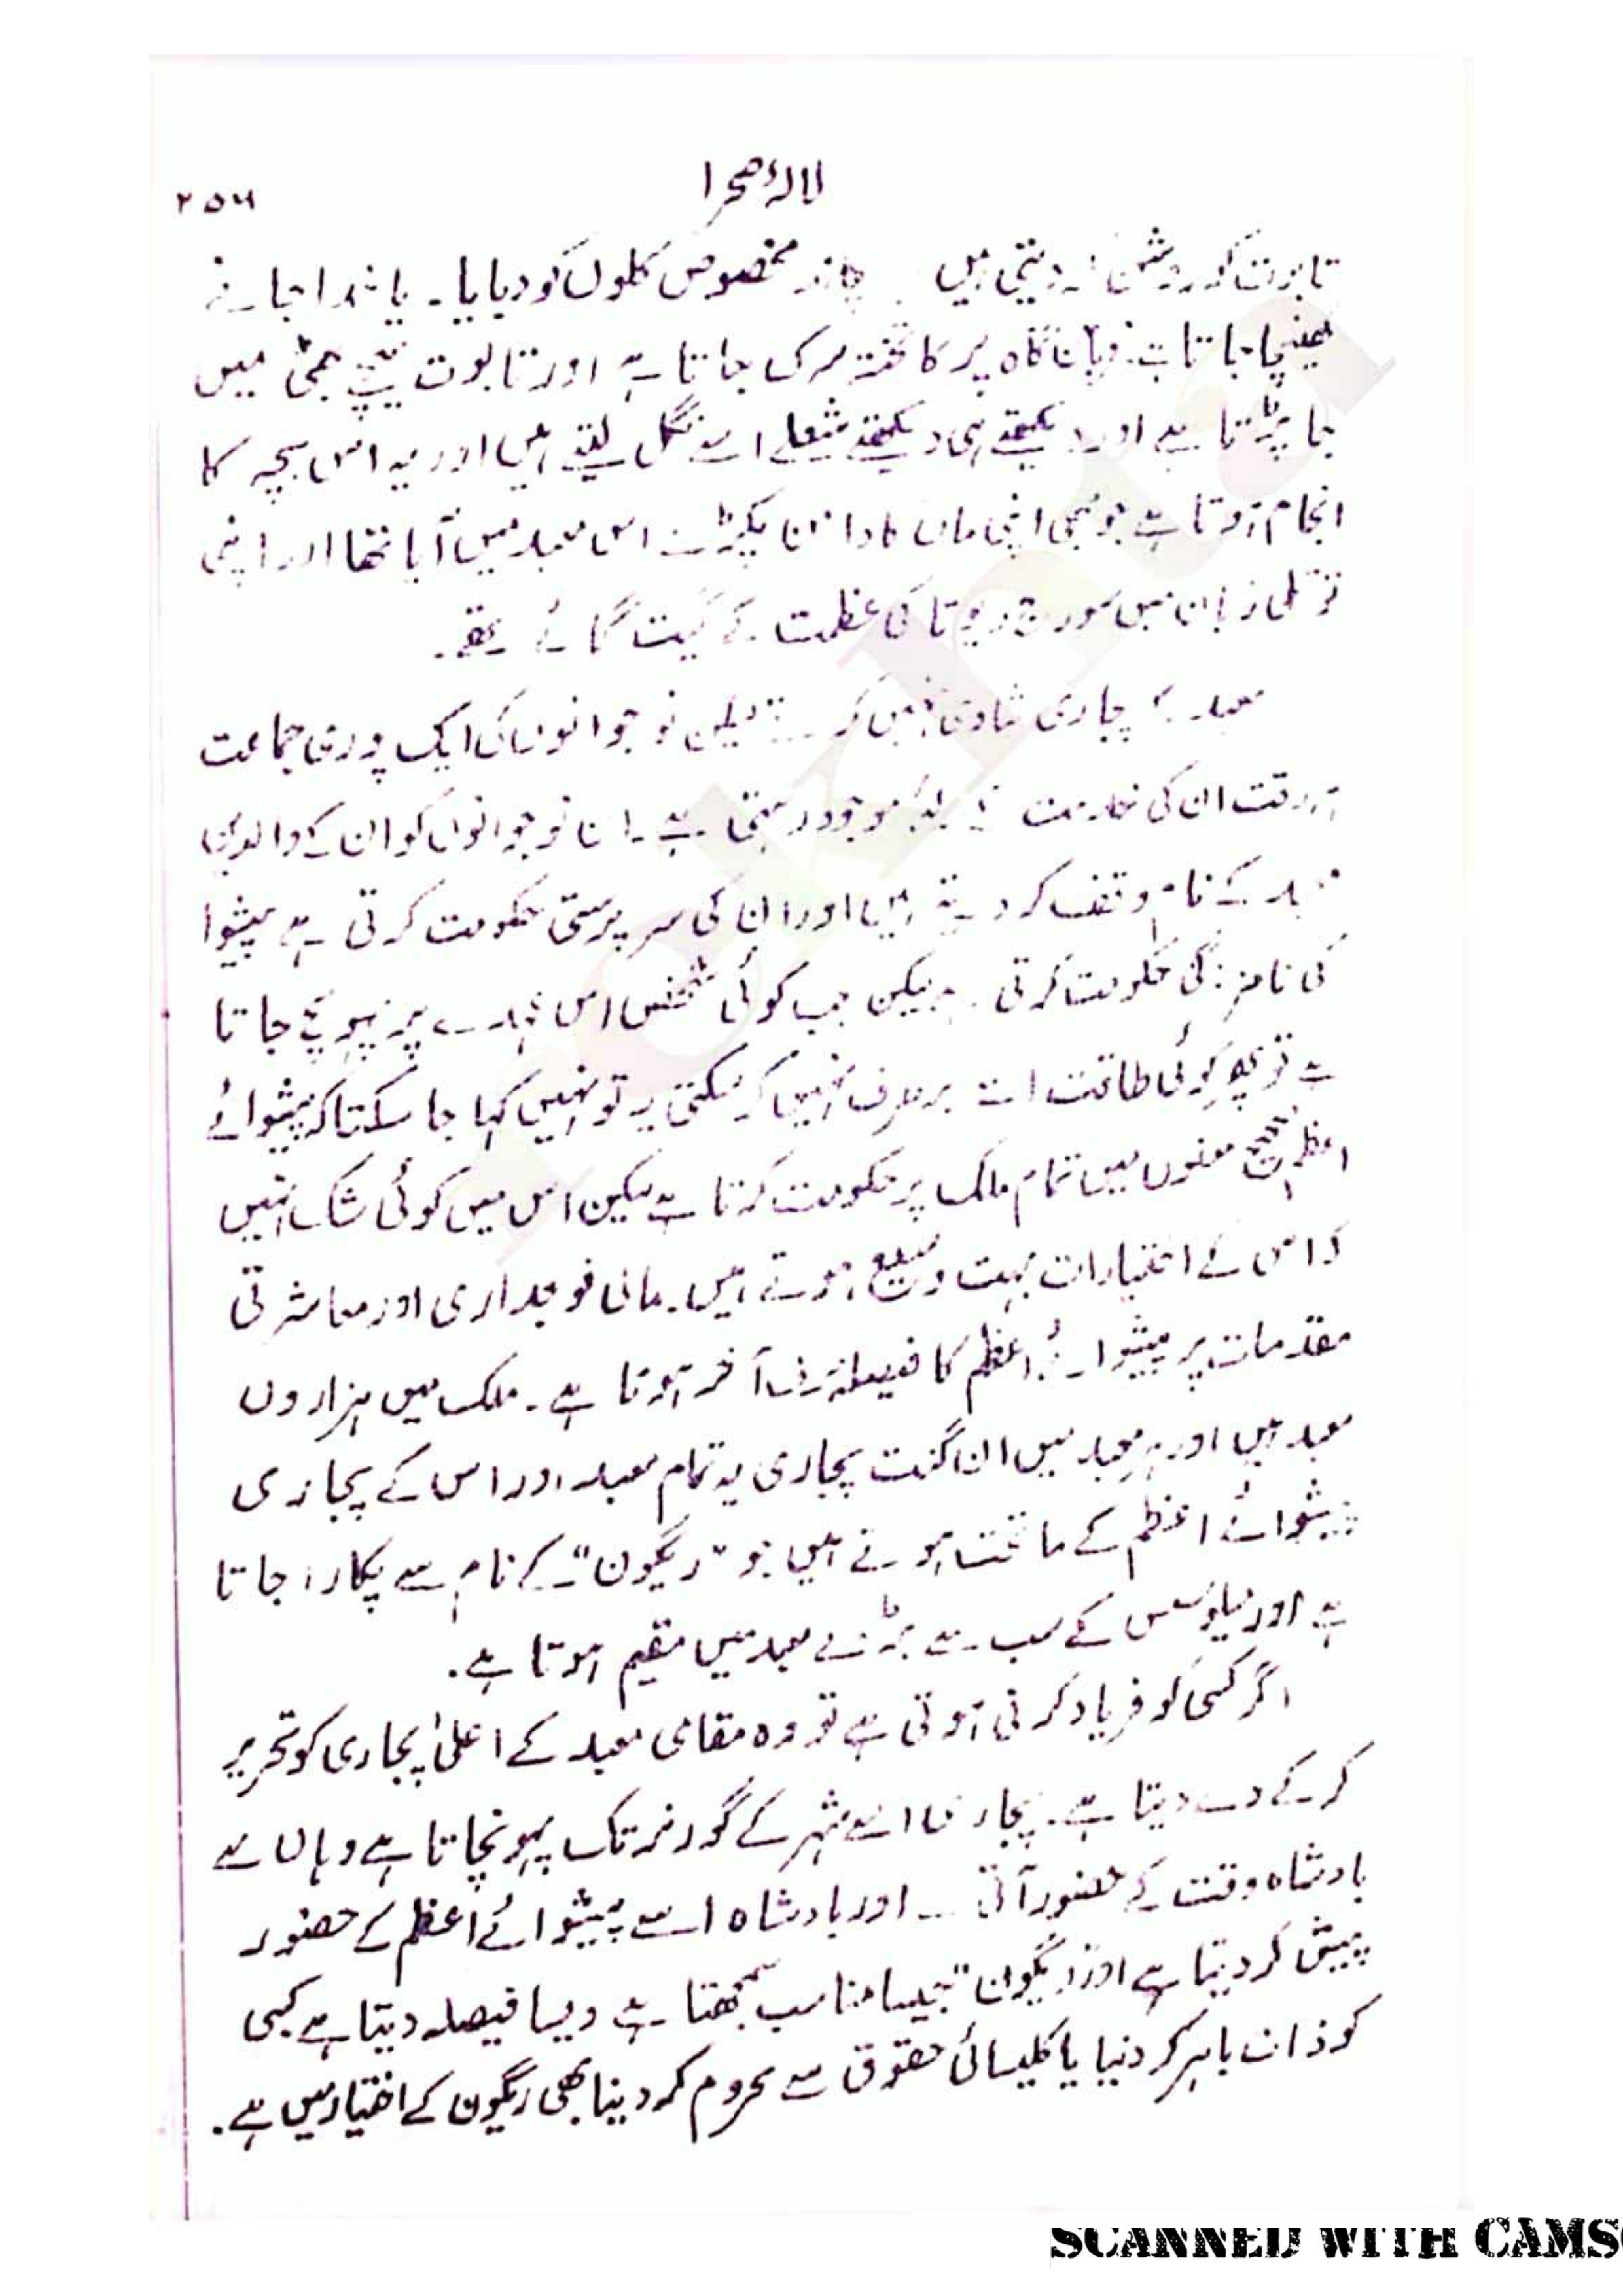 لالۂ صحرا
۲۵۶
تابوت کو روشن دیتی ہیں مخصوص کلوں کو دبایا۔ یا
کھینچا جاتا قربان گاہ پر کا تختہ سرک جاتا ہے اور تابوت نیچے بھٹی میں
جا پڑتا ہے اور دیکھتے ہی دیکھتے شعلے اسے نگل لیتے ہیں اور یہ اس بچہ کا
انجام ہوتا ہے جو کبھی اپنی ماں کا دامن پکڑے اس معبد میں آیا تھا اور اپنی
توتلی زبان میں سورج دیوتا کی عظمت کے گیت گائے تھے۔
معبد کے پجاری شادی نہیں کرتے لیکن نوجوانوں کی ایک پوری جماعت
ہر وقت ان کی خدمت کے لئے موجود رہتی ہے۔ ان نوجوانوں کو ان کے والدین
معبد کے نام وقف کر دیتے ہیں اور ان کی سرپرستی حکومت کرتی ہے پیشوا
کی نامزدگی حکومت کرتی ہے لیکن جب کوئی شخص اس عہدے پر پہونچ جاتا
ہے تو پھر کوئی طاقت اسے برطرف نہیں کر سکتی یہ تو نہیں کہا جا سکتا کہ پیشوائے
اعظم صحیح معنوں میں تمام ملک پر حکومت کرتا ہے لیکن اس میں کوئی شک نہیں
کہ اس کے اختیارات بہت وسیع ہوتے ہیں۔ مالی فوجداری اور معاشرتی
مقدمات پر پیشوائے اعظم کا فیصلہ حرف آخر ہوتا ہے۔ ملک میں ہزاروں
معبد ہیں اور ہر معبد میں ان گنت پجاری یہ تمام معبد اور اس کے پجاری
پیشوائے اعظم کے ماتحت ہوتے ہیں جو "ریگون" کے نام سے پکارا جاتا
ہے اور میلوسس کے سب سے بڑے معبد میں مقیم ہوتا ہے۔
اگر کسی کو فریاد کرنی ہوتی ہے تو وہ مقامی معبد کے اعلیٰ پجاری کو تحریر
کر کے دے دیتا ہے۔ پجاری اسے شہر کے گورنر تک پہونچاتا ہے وہاں سے
بادشاہ وقت کے حضور آتی ہے اور بادشاہ اسے پیشوائے اعظم کے حضور
پیش کر دیتا ہے اور "ریگون" جیسا مناسب سمجھتا ہے ویسا فیصلہ دیتا ہے کسی
کو ذات باہر کر دنیا یا کلیسائی حقوق سے محروم کر دینا بھی ریگون کے اختیار میں ہے۔
SCANNED WITH CAMS